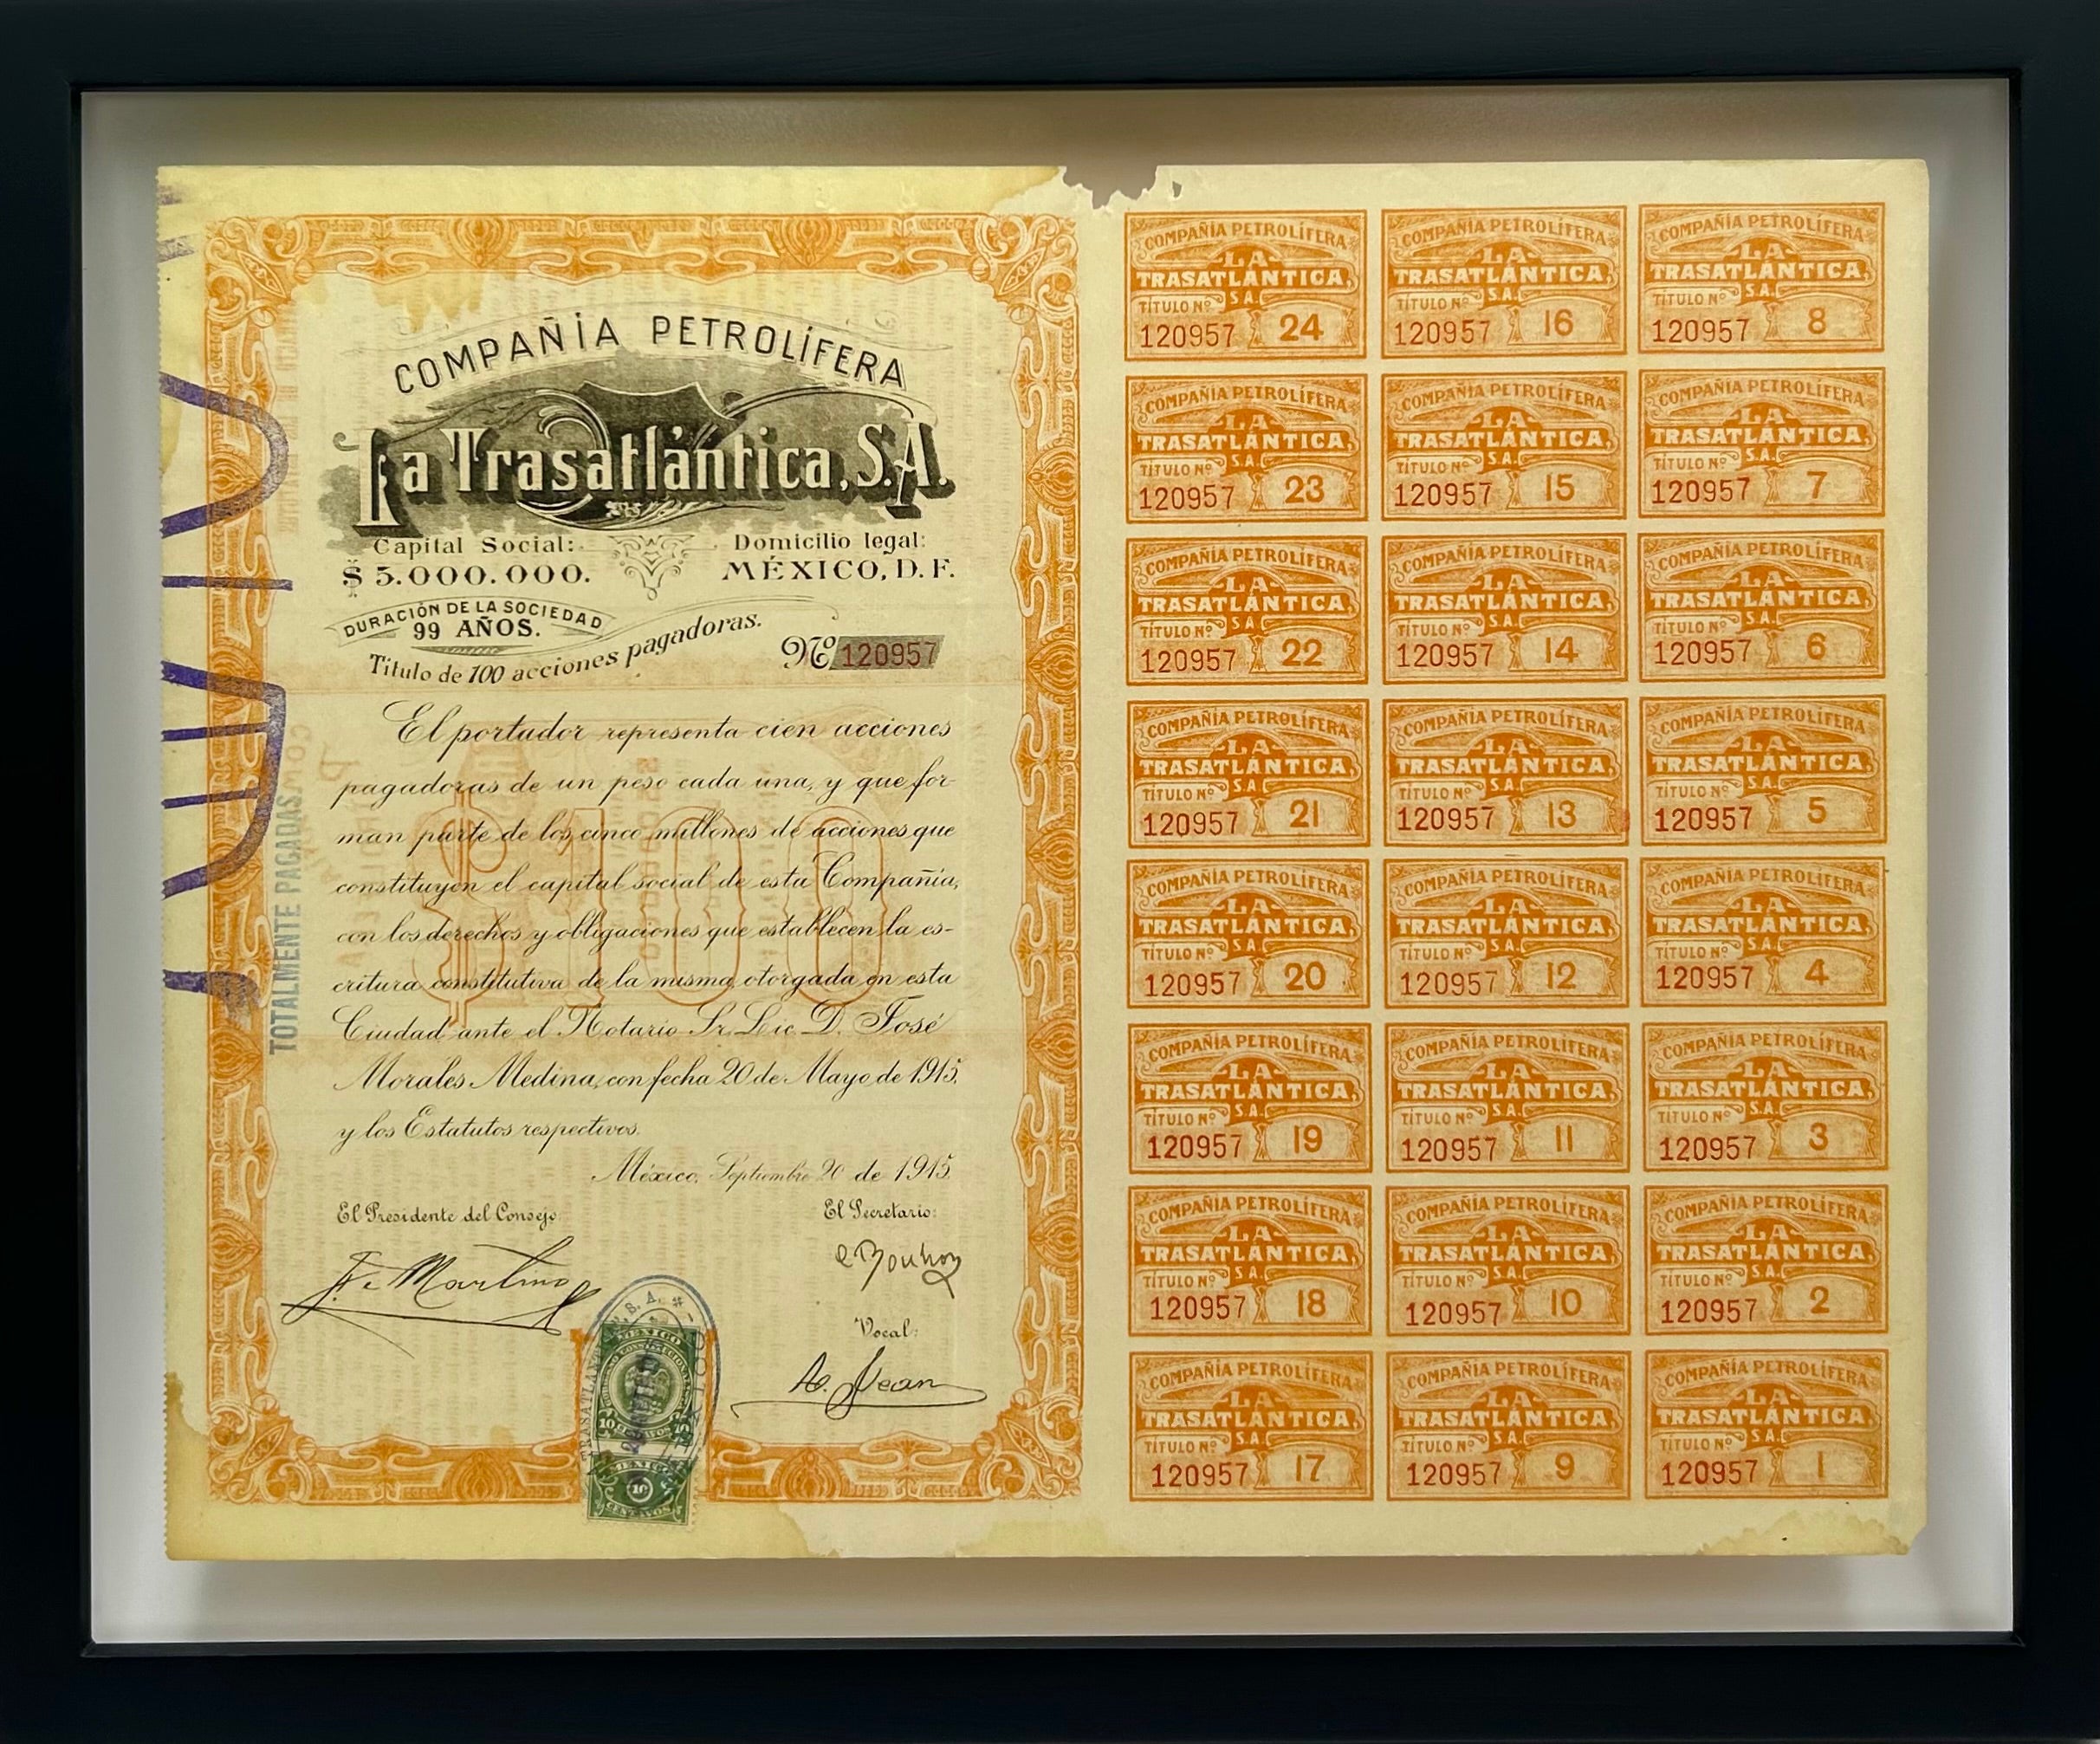 COMPAÑÍA PETROLÍFERA
La Trasatlántica, S.A.
Capital Social:
$ 5.000.000.
Domicilio legal:
MÉXICO, D. F.
DURACIÓN DE LA SOCIEDAD
99 AÑOS.
Título de 100 acciones pagadoras.
Nº 120957
El portador representa cien acciones
pagadoras de un peso cada una, y que for-
man parte de los cinco millones de acciones que
constituyen el capital social de esta Compañía,
con los derechos y obligaciones que establecen la es-
critura constitutiva de la misma, otorgada en esta
Ciudad ante el Notario Sr. Lic. D. José
Morales Medina, con fecha 20 de Mayo de 1915,
y los Estatutos respectivos.
México, Septiembre 20 de 1915.
El Presidente del Consejo:
F. Martino
El Secretario:
Vocal:
TOTALMENTE PAGADAS.
$100
MEXICO
10 CENTAVOS
MEXICO
10
CENTAVOS
COMPAÑÍA PETROLÍFERA
LA
TRASATLÁNTICA,
S.A.
TÍTULO Nº
120957 24
COMPAÑÍA PETROLÍFERA
LA
TRASATLÁNTICA,
S.A.
TÍTULO Nº
120957 16
COMPAÑÍA PETROLÍFERA
LA
TRASATLÁNTICA,
S.A.
TÍTULO Nº
120957 8
COMPAÑÍA PETROLÍFERA
LA
TRASATLÁNTICA,
S.A.
TÍTULO Nº
120957 23
COMPAÑÍA PETROLÍFERA
LA
TRASATLÁNTICA,
S.A.
TÍTULO Nº
120957 15
COMPAÑÍA PETROLÍFERA
LA
TRASATLÁNTICA,
S.A.
TÍTULO Nº
120957 7
COMPAÑÍA PETROLÍFERA
LA
TRASATLÁNTICA,
S.A.
TÍTULO Nº
120957 22
COMPAÑÍA PETROLÍFERA
LA
TRASATLÁNTICA,
S.A.
TÍTULO Nº
120957 14
COMPAÑÍA PETROLÍFERA
LA
TRASATLÁNTICA,
S.A.
TÍTULO Nº
120957 6
COMPAÑÍA PETROLÍFERA
LA
TRASATLÁNTICA,
S.A.
TÍTULO Nº
120957 21
COMPAÑÍA PETROLÍFERA
LA
TRASATLÁNTICA,
S.A.
TÍTULO Nº
120957 13
COMPAÑÍA PETROLÍFERA
LA
TRASATLÁNTICA,
S.A.
TÍTULO Nº
120957 5
COMPAÑÍA PETROLÍFERA
LA
TRASATLÁNTICA,
S.A.
TÍTULO Nº
120957 20
COMPAÑÍA PETROLÍFERA
LA
TRASATLÁNTICA,
S.A.
TÍTULO Nº
120957 12
COMPAÑÍA PETROLÍFERA
LA
TRASATLÁNTICA,
S.A.
TÍTULO Nº
120957 4
COMPAÑÍA PETROLÍFERA
LA
TRASATLÁNTICA,
S.A.
TÍTULO Nº
120957 19
COMPAÑÍA PETROLÍFERA
LA
TRASATLÁNTICA,
S.A.
TÍTULO Nº
120957 11
COMPAÑÍA PETROLÍFERA
LA
TRASATLÁNTICA,
S.A.
TÍTULO Nº
120957 3
COMPAÑÍA PETROLÍFERA
LA
TRASATLÁNTICA,
S.A.
TÍTULO Nº
120957 18
COMPAÑÍA PETROLÍFERA
LA
TRASATLÁNTICA,
S.A.
TÍTULO Nº
120957 10
COMPAÑÍA PETROLÍFERA
LA
TRASATLÁNTICA,
S.A.
TÍTULO Nº
120957 2
COMPAÑÍA PETROLÍFERA
LA
TRASATLÁNTICA,
S.A.
TÍTULO Nº
120957 17
COMPAÑÍA PETROLÍFERA
LA
TRASATLÁNTICA,
S.A.
TÍTULO Nº
120957 9
COMPAÑÍA PETROLÍFERA
LA
TRASATLÁNTICA,
S.A.
TÍTULO Nº
120957 1